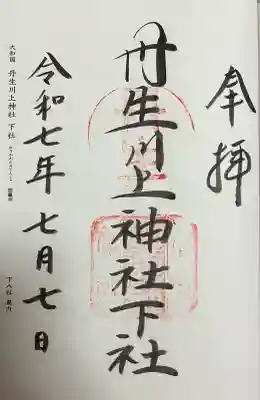 奉拝
丹生川上神社下社
令和七年七月七日
大和国 丹生川上神社 下社